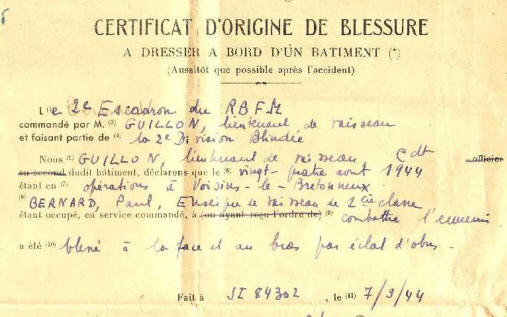 CERTIFICAT D'ORIGINE DE BLESSURE
A DRESSER A BORD D'UN BATIMENT (*)
(Aussitôt que possible après l'accident)
L(1)e 2e Escadron du RBFM
commandé par M. (2) GUILLON, lieutenant de vaisseau
et faisant partie de (4) la 2e Division Blindée
Nous (5) GUILLON, lieutenant de vaisseau Cdt officier
en second dudit bâtiment, déclarons que le (6) vingt-quatre août 1944
étant en (7) opérations à Voisins-le-Bretonneux
(8) BERNARD, Paul, Enseigne de vaisseau de 1ère classe
étant occupé, en service commandé, à (ou ayant reçu l'ordre de) (9) combattre l'ennemi
a été (10) blessé à la face et au bras par éclat d'obus -
Fait à SI 84302, le (11) 7/9/44